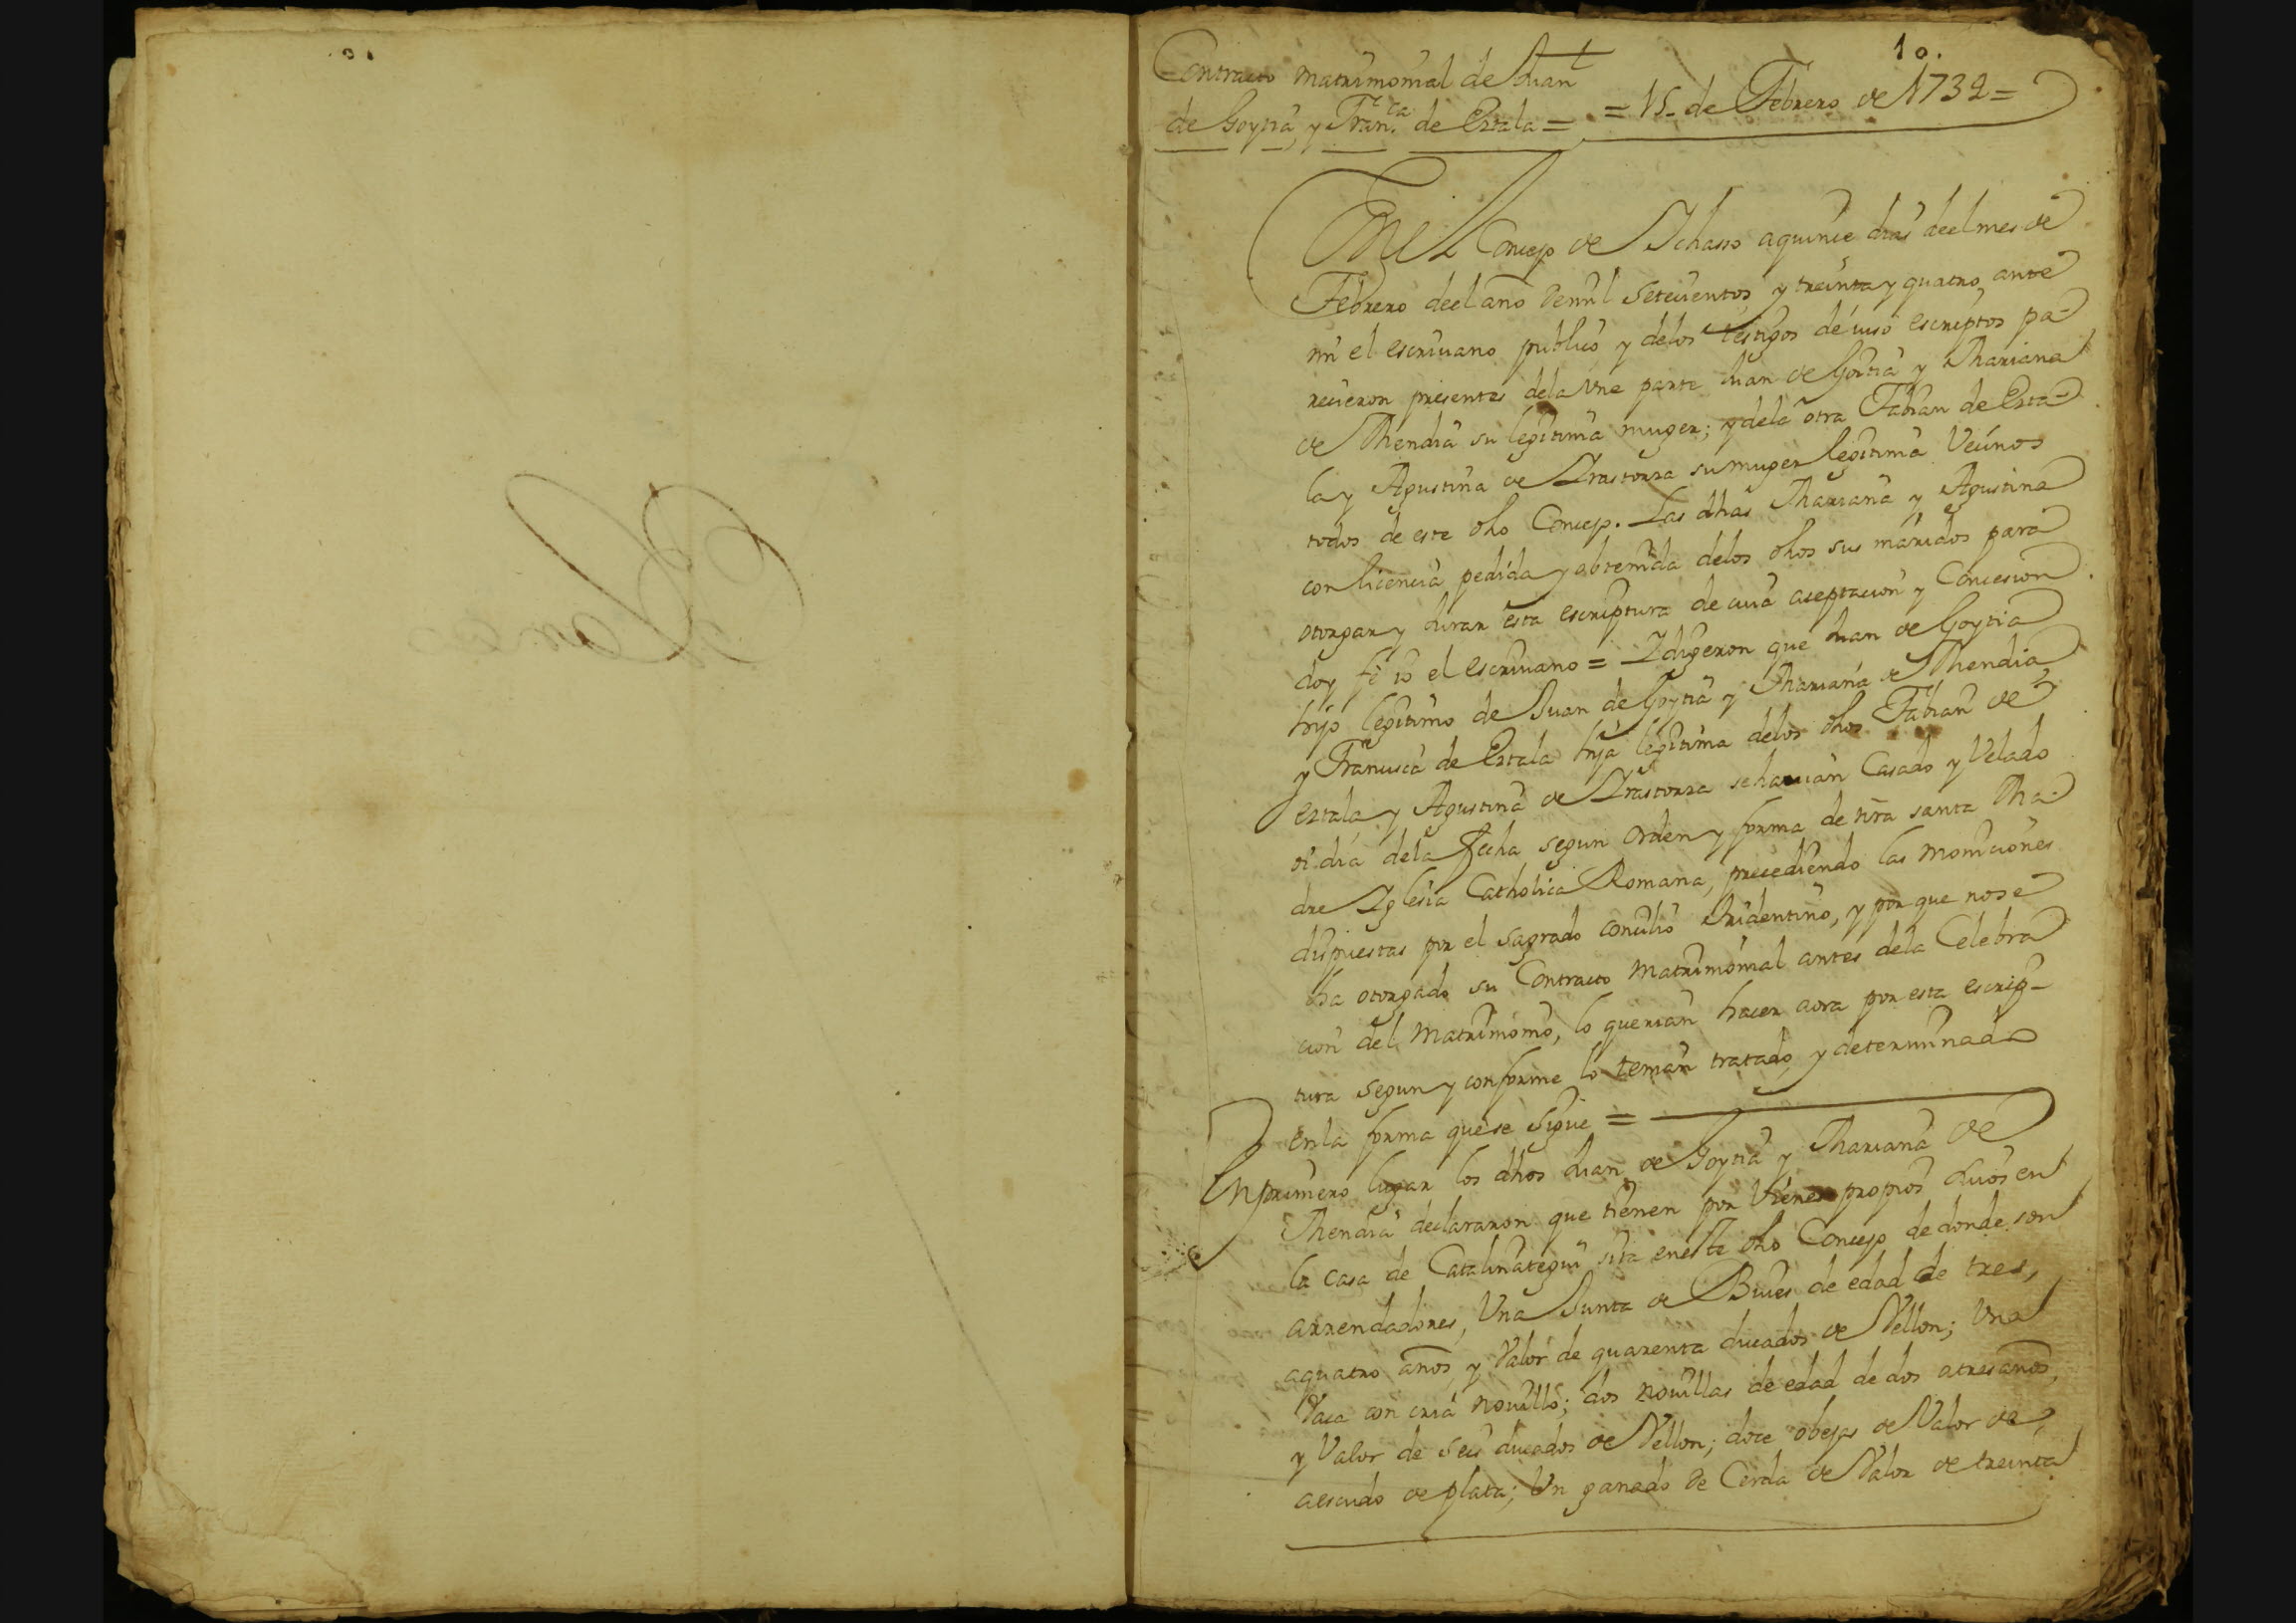 10.
Contracto matrimonial de Juan
de Goytia, y Fran.ca de Eztala =
= 15. de Febrero de 1734 =
En el Concejo de Ichasso a quince dias del mes de
Febrero de el año de mil setecientos y treinta y quatro, ante
mi el escriuano publico y de los testigos de iuso escriptos pa-
recieron presentes de la una parte Juan de Goitia y Mariana
de Mendia su legitima muger; y de la otra Fabian de Ezta-
la y Agustina de Irastorza su muger legitima Vecinos
todos de este dho Concejo. Las dhas Mariana y Agustina
con licencia pedida y obtenida de los dhos sus maridos para
otorgar y Jurar esta escriptura de cuia aceptacion y Concesion
doy fe io el escriuano = I digeron que Juan de Goytia
hijo legitimo de Juan de Goytia y Mariana de Mendia,
y Francisca de Eztala hija legitima de los dhos Fabian de
eztala y Agustina de Irastorza se hauian Casado y Velado
oi dia de la fecha segun orden y forma de nra santa Ma-
dre Iglesia Catholica Romana, precediendo las moniciones
dispuestas por el sagrado concilio tridentino, y por que no se
ha otorgado su Contracto matrimonial antes de la Celebra
cion del Matrimonio, lo querian hacer aora por esta escrip-
tura segun y conforme lo tenian tratado, y determinado
en la forma que se sigue =
En primero lugar los dhos Juan de Goytia y Mariana de
Mendia declararon que tienen por Vienes propios suios en
la casa de Catalinategui sita en este dho Concejo de donde son
arrendadores, Una Junta de Bueies de edad de tres,
a quatro años, y Valor de quarenta ducados de Vellon; Una
Vaca con cria nouillo; dos nouillas de edad de dos a tres años,
y Valor de seis ducados de Vellon; doce obejas de Valor de
a escudo de plata; Un ganado de Cerda de Valor de treinta